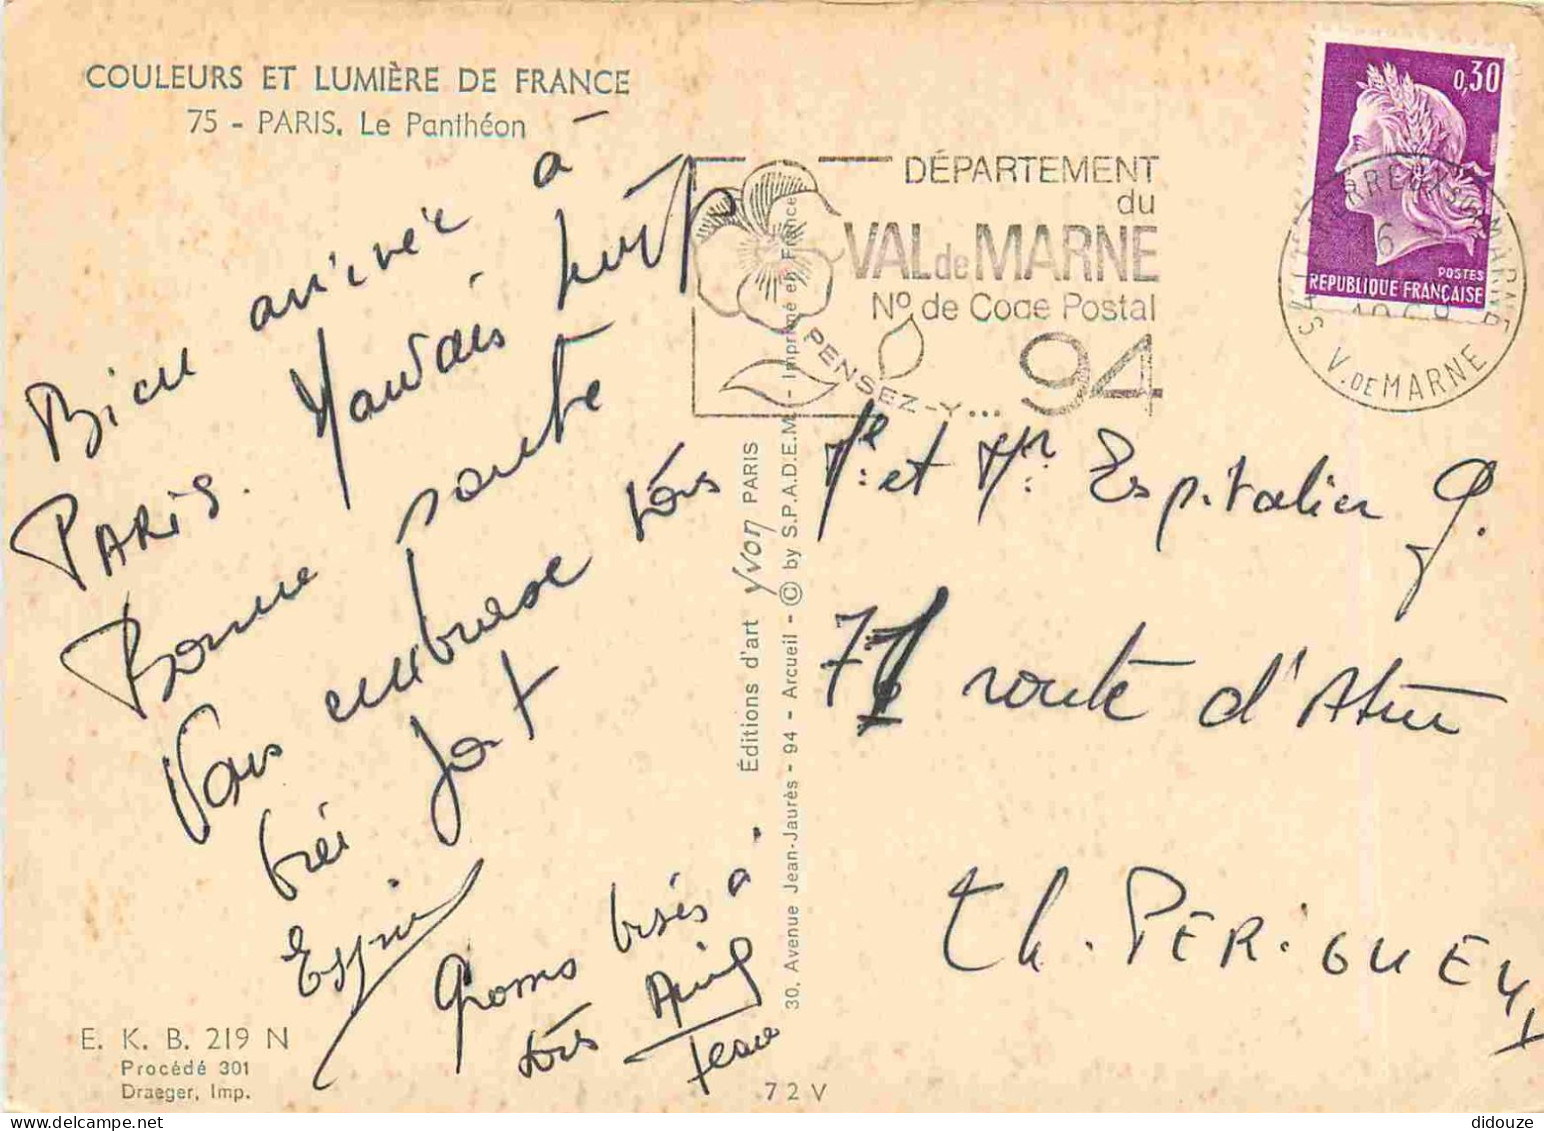 COULEURS ET LUMIÈRE DE FRANCE
75 - PARIS. Le Panthéon
Bien arrivée à
PARIS. Mauvais temps
Bonne route
Vous embrasse tous
très fort
Grosses bises à
tous
E. K. B. 219 N
Procédé 301
Draeger, Imp.
Éditions d'art Yvon PARIS
30, Avenue Jean-Jaurès - 94 - Arcueil - © by S.P.A.D.E.M. - Imprimé en France
72V
DÉPARTEMENT
du
VAL de MARNE
N° de Code Postal
94
PENSEZ-Y...
0,30
POSTES
REPUBLIQUE FRANÇAISE
V. DE MARNE
Me et Mr Espitalier G.
71 route d'Atur
PERIGUEUX
didouze